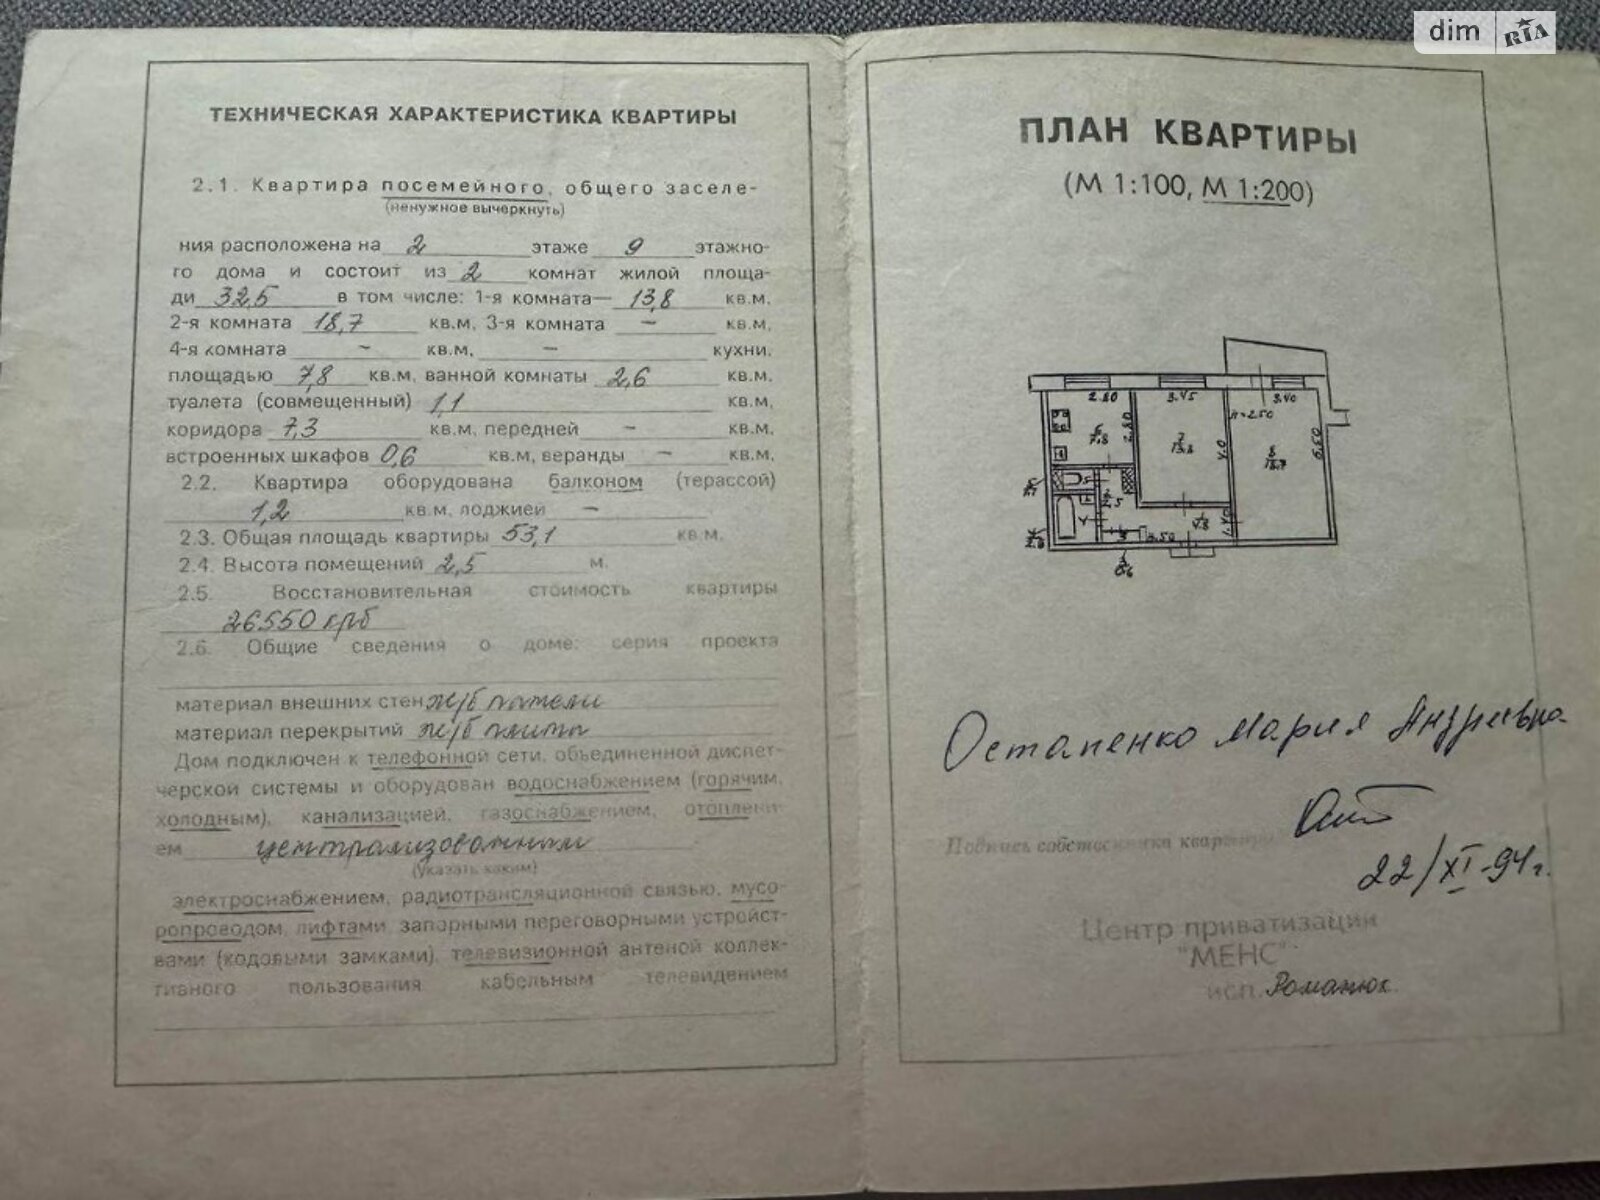 dim RIA
ТЕХНИЧЕСКАЯ ХАРАКТЕРИСТИКА КВАРТИРЫ
2.1. Квартира посемейного, общего заселе-
(ненужное вычеркнуть)
ния расположена на 2 этаже 9 этажно-
го дома и состоит из 2 комнат жилой площа-
ди 32,5 в том числе: 1-я комната— 13,8 кв.м.
2-я комната 18,7 кв.м, 3-я комната — кв.м,
4-я комната — кв.м, — кухни,
площадью 7,8 кв.м, ванной комнаты 2,6 кв.м,
туалета (совмещенный) 1,1 кв.м,
коридора 7,3 кв.м, передней — кв.м,
встроенных шкафов 0,6 кв.м, веранды — кв.м,
2.2. Квартира оборудована балконом (терассой)
1,2 кв.м, лоджией —
2.3. Общая площадь квартиры 53,1 кв.м.
2.4. Высота помещений 2,5 м.
2.5. Восстановительная стоимость квартиры
26550 крб
2.6. Общие сведения о доме: серия проекта
материал внешних стен ж/б панели
материал перекрытий ж/б плита
Дом подключен к телефонной сети, объединенной диспет-
черской системы и оборудован водоснабжением (горячим,
холодным), канализацией, газоснабжением, отоплени-
ем централизованным
(указать каким)
электроснабжением, радиотрансляционной связью, мусо-
ропроводом, лифтами, запорными переговорными устройст-
вами (кодовыми замками), телевизионной антеной коллек-
тивного пользования кабельным телевидением
ПЛАН КВАРТИРЫ
(М 1:100, М 1:200)
2.80 3.45 3.40
h=2.50
6 7.8 2.80 7 13.8 4.0 8 18.7 5.50
2.5 4.8 1.40
3.50
0.6
Остапенко Мария Андреевна
Подпись собственника квартиры
22/XI-94г.
Центр приватизации
"МЕНС"
исп. Романюк